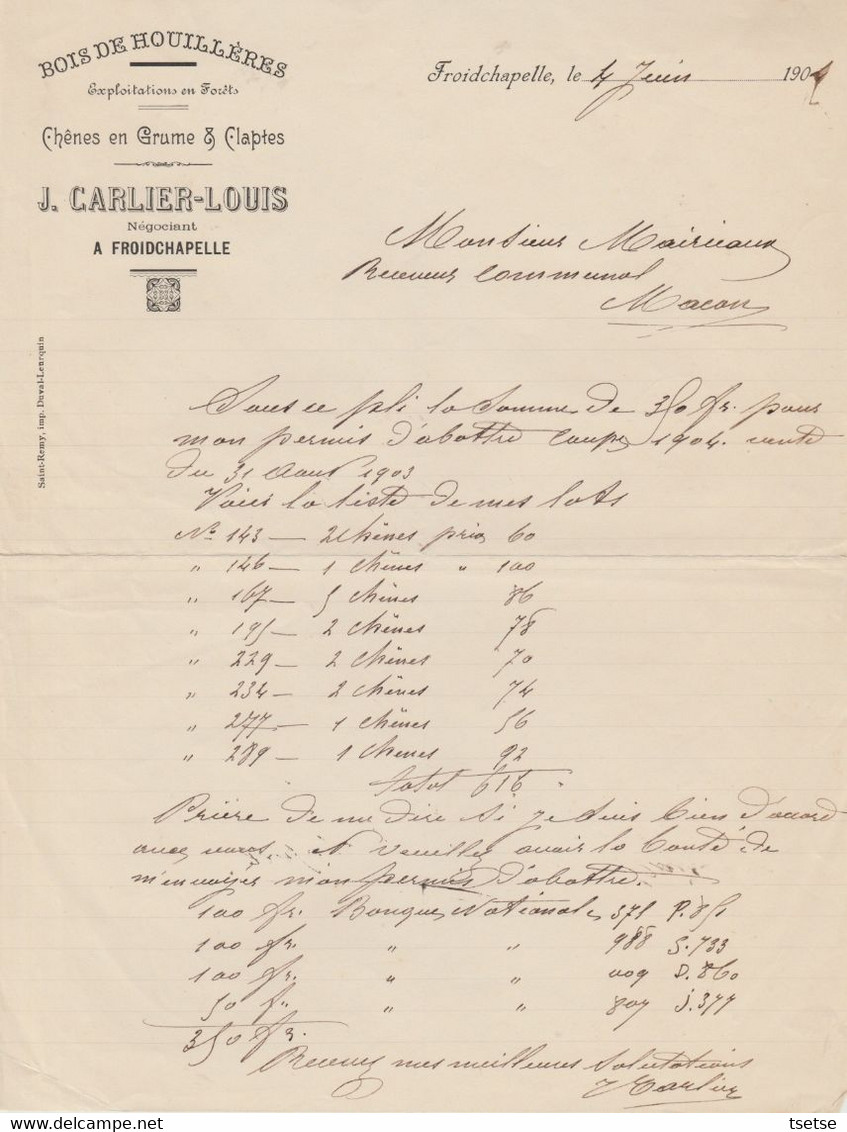 BOIS DE HOUILLÈRES
Exploitations en Forêts
Chênes en Grume & Claptes
J. CARLIER-LOUIS
Négociant
A FROIDCHAPELLE
Saint-Remy, imp. Duval-Leurquin
Froidchapelle, le 4 Juin 1904
Monsieur Mairieaux
Receveur communal
Macon
Sous ce pli la somme de 350 fr. pour
mon permis d'abattre coupe 1904. vente
du 31 Aout 1903
Voici la liste de mes lots
No 143 — 2 chênes prix 60
" 146 — 1 chênes " 100
" 167 — 5 chênes 86
" 195 — 2 chênes 78
" 229 — 2 chênes 70
" 234 — 2 chênes 74
" 277 — 1 chênes 56
" 289 — 1 chênes 92
total 616 "
Prière de me dire si je suis bien d'accord
avec vous. et veuillez avoir la bonté de
m'envoyer mon permis d'abattre.
100 fr. Banque Nationale 571 P. 851
100 fr. " " 988 S. 733
100 fr. " " 009 D. 860
50 fr. " " 807 J. 377
350 fr.
Recevez mes meilleures salutations
J Carlier
tsetse